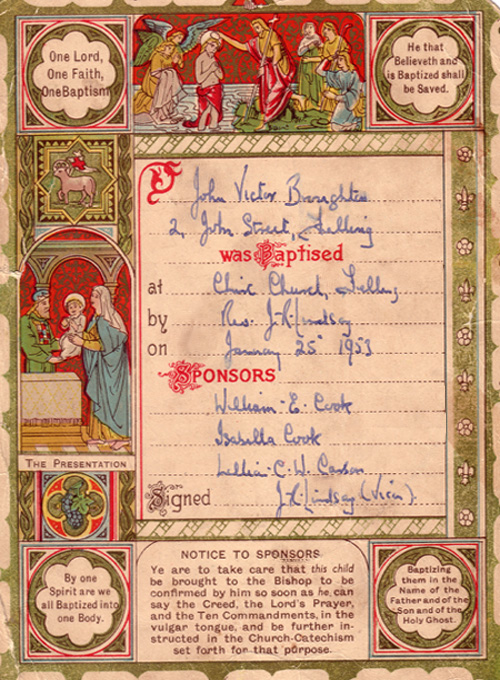 One Lord,
One Faith,
One Baptism
He that
Believeth and
is Baptized shall
be Saved.
John Victor Broughton
2, John Street, Felling
was Baptised
at Christ Church, Felling
by Rev. J. R. Lindsay
on January 25 1953
SPONSORS
William - E. Cook
Isabella Cook
Lillian C. W. Carson
Signed J. R. Lindsay (Vicar).
THE PRESENTATION
By one
Spirit are we
all Baptized into
one Body.
NOTICE TO SPONSORS
Ye are to take care that this child
be brought to the Bishop to be
confirmed by him so soon as he can
say the Creed, the Lord's Prayer,
and the Ten Commandments, in the
vulgar tongue, and be further in-
structed in the Church-Catechism
set forth for that purpose.
Baptizing
them in the
Name of the
Father and of the
Son and of the
Holy Ghost.